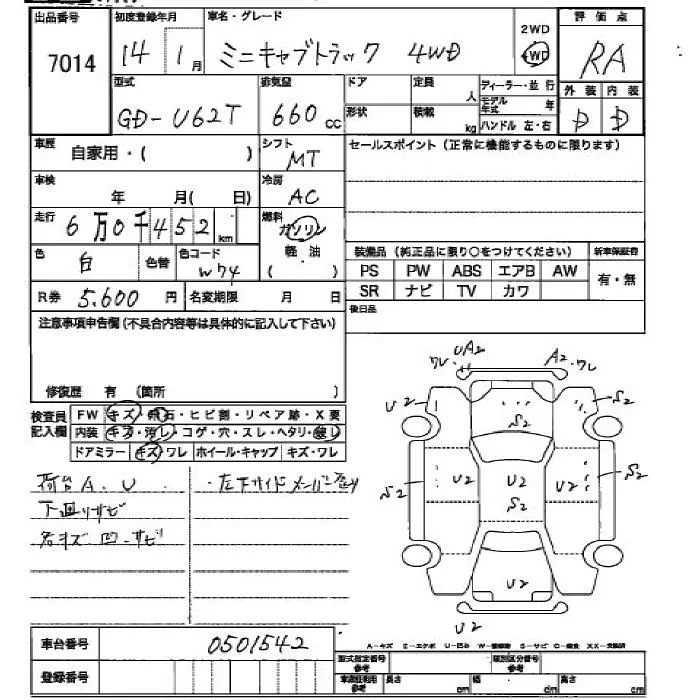 出品番号 初度登録年月 車名・グレード 2WD 4WD 評価点
7014 14 1月 ミニキャブトラック 4WD RA
型式 排気量 ドア 定員 人 ディーラー・並行 外装 内装
GD-U62T 660cc 形状 積載 kg モデル年式 年 ハンドル 左・右 D D
車歴 自家用・( ) シフト MT セールスポイント(正常に機能するものに限ります)
車検 年 月( 日) 冷房 AC
走行 6万0千452km 燃料 ガソリン
軽油 ( )
色 白 色替 色コード W74
装備品(純正品に限り○をつけてください) 新車保証書
PS PW ABS エアB AW 有・無
SR ナビ TV カワ
R券 5,600円 名変期限 月 日 後日品
注意事項申告欄(不具合内容等は具体的に記入して下さい)
修復歴 有 (箇所 )
検査員記入欄 FW キズ・飛石・ヒビ割・リペア跡・X要
内装 キズ・汚レ・コゲ・穴・スレ・ヘタリ・
ドアミラー キズ・ワレ ホイール・キャップ キズ・ワレ
荷台A.U ・左下サイドメンバー
下廻りサビ
各キズ 凹.サビ
ワレ UA2 A2 ワレ
U2 S2 S2
S2 U2 U2 U2 S2
S2
U2
U2
車台番号 0501542
A-キズ E-エクボ U-凹み S-サビ C-腐食 XX-交換済
登録番号 型式指定番号 参考 類別区分番号 参考
参考 長さ cm 幅 cm 高さ cm